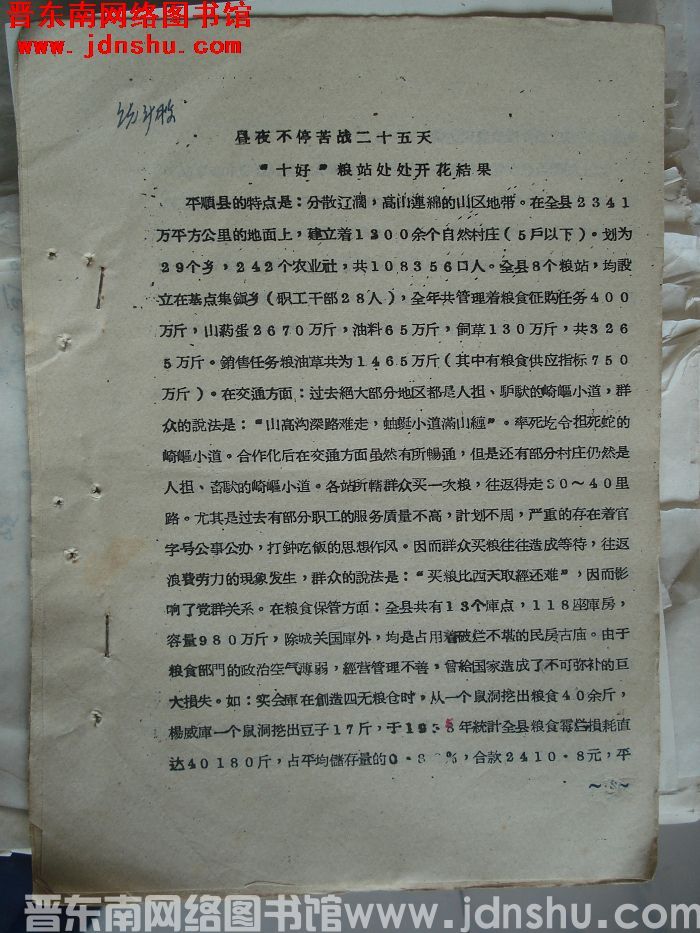 晋东南网络图书馆
www.jdnshu.com
昼夜不停苦战二十五天
“十好”粮站处处开花結果
平順县的特点是：分散辽濶，高山連綿的山区地带。在全县2341
万平方公里的地面上，建立着1300余个自然村庄（5戶以下）。划为
29个乡，242个农业社，共108356口人。全县8个粮站，均設
立在基点集鎮乡（职工干部28人），全年共管理着粮食征购任务400
万斤，山葯蛋2670万斤，油料65万斤，飼草130万斤，共326
5万斤。銷售任务粮油草共为1465万斤（其中有粮食供应指标750
万斤）。在交通方面：过去絕大部分地区都是人担、馿馱的崎嶇小道，群
众的說法是：“山高沟深路难走，蚰蜒小道滿山纏”。率死圪令担死蛇的
崎嶇小道。合作化后在交通方面虽然有所暢通，但是还有部分村庄仍然是
人担、畜馱的崎嶇小道。各站所轄群众买一次粮，往返得走30～40里
路。尤其是过去有部分职工的服务质量不高，計划不周，严重的存在着官
字号公事公办，打鈡吃飯的思想作风。因而群众买粮往往造成等待，往返
浪費劳力的現象发生，群众的說法是：“买粮比西天取經还难”，因而影
响了党群关系。在粮食保管方面：全县共有13个庫点，118座庫房，
容量980万斤，除城关国庫外，均是占用着破烂不堪的民房古庙。由于
粮食部門的政治空气薄弱，經营管理不善，曾給国家造成了不可弥补的巨
大損失。如：实会庫在創造四无粮仓时，从一个鼠洞挖出粮食40余斤，
楊威庫一个鼠洞挖出豆子17斤，于195年統計全县粮食霉烂損耗直
达40180斤，占平均儲存量的0·8%，合款2410·8元，平
晋东南网络图书馆www.jdnshu.com